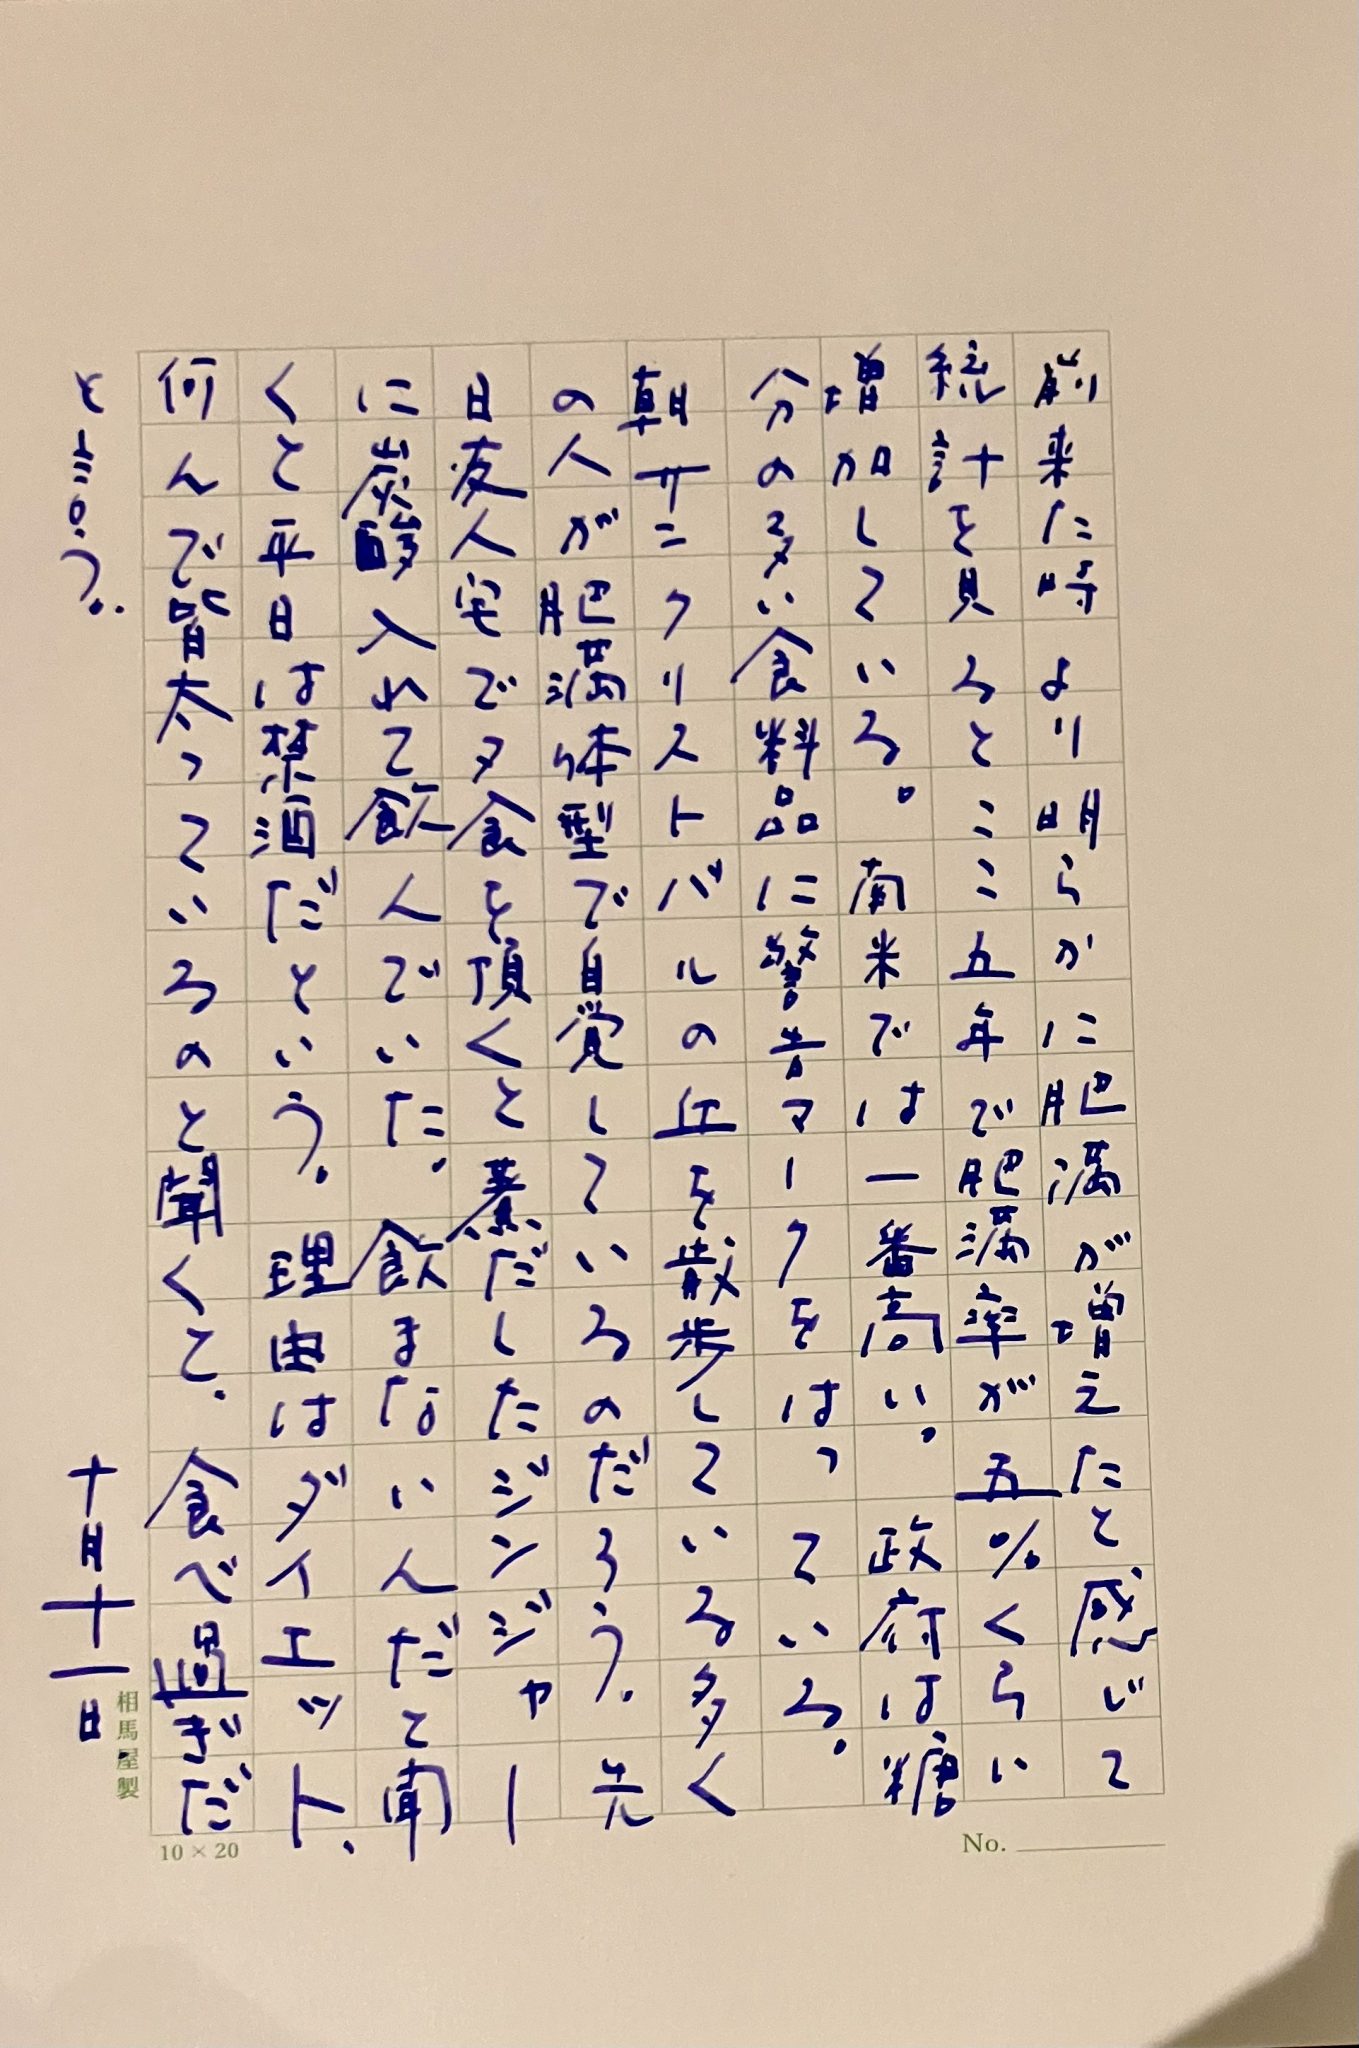 前来た時より明らかに肥満が増えたと感じて
統計を見るとここ五年で肥満率が五%くらい
増加している。南米では一番高い。政府は糖
分の多い食料品に警告マークをはっている。
朝サンクリストバルの丘を散歩している多く
の人が肥満体型で自覚しているのだろう。先
日友人宅で夕食を頂くと煮だしたジンジャー
に炭酸入れて飲んでいた。飲まないんだと聞
くと平日は禁酒だという。理由はダイエット、
何んで皆太っているのと聞くと、食べ過ぎだ
と言う。
十月十一日
相馬屋製
10×20
No.